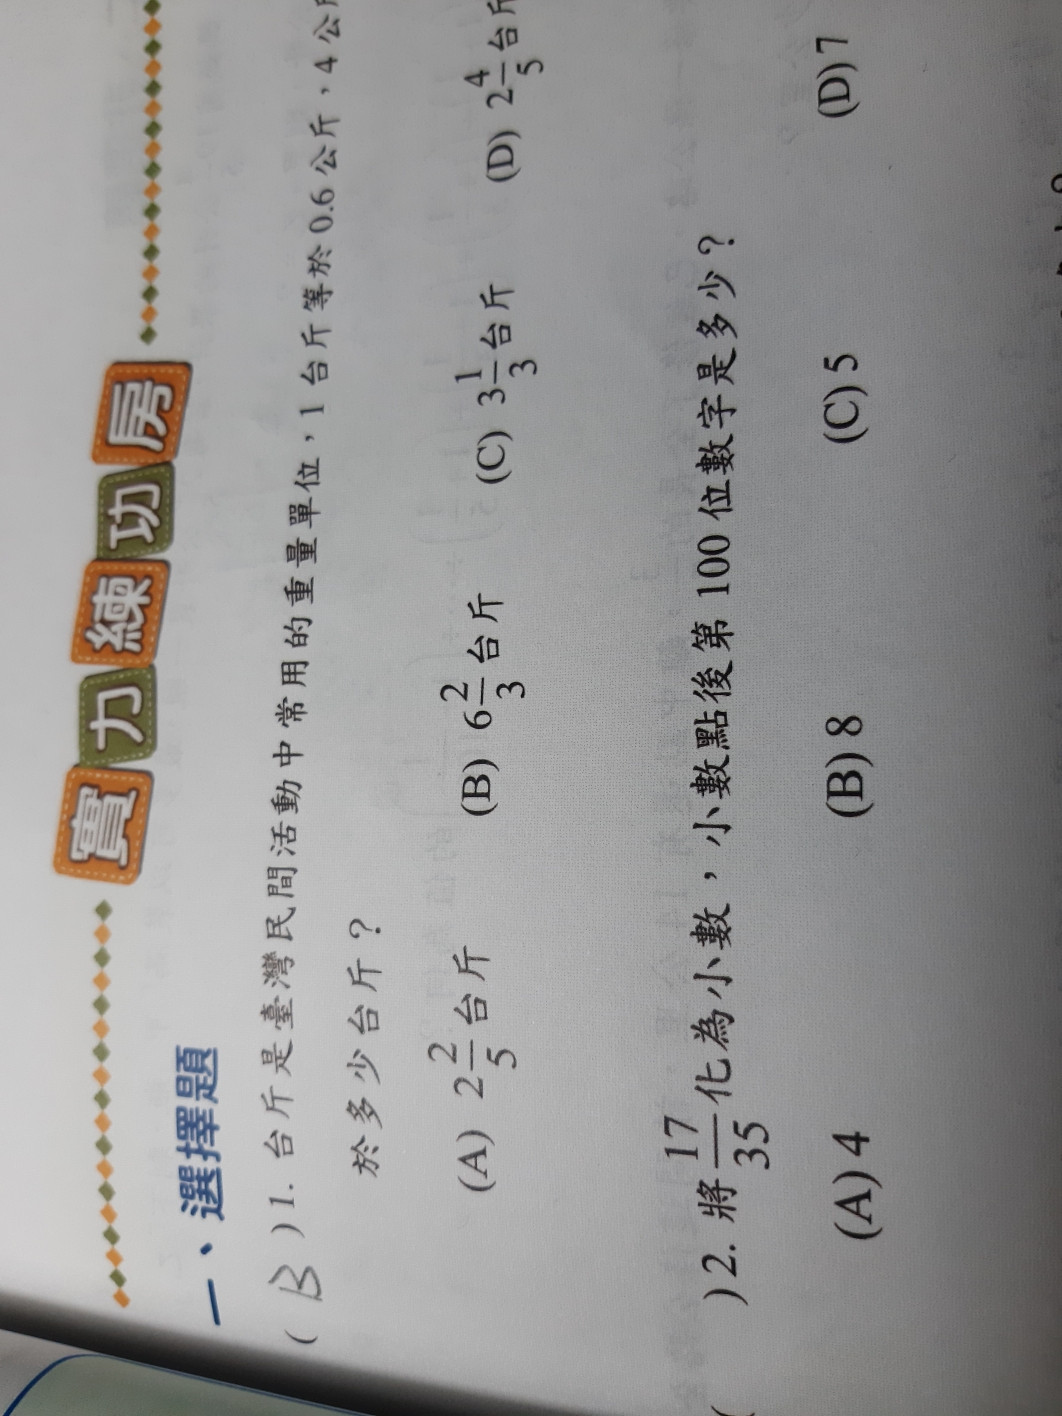 實力練功房
一、選擇題
( B ) 1. 台斤是臺灣民間活動中常用的重量單位，1 台斤等於 0.6 公斤，4 公
於多少台斤？
(A) 2 2/5 台斤 (B) 6 2/3 台斤 (C) 3 1/3 台斤 (D) 2 4/5 台斤
( ) 2. 將 17/35 化為小數，小數點後第 100 位數字是多少？
(A) 4 (B) 8 (C) 5 (D) 7